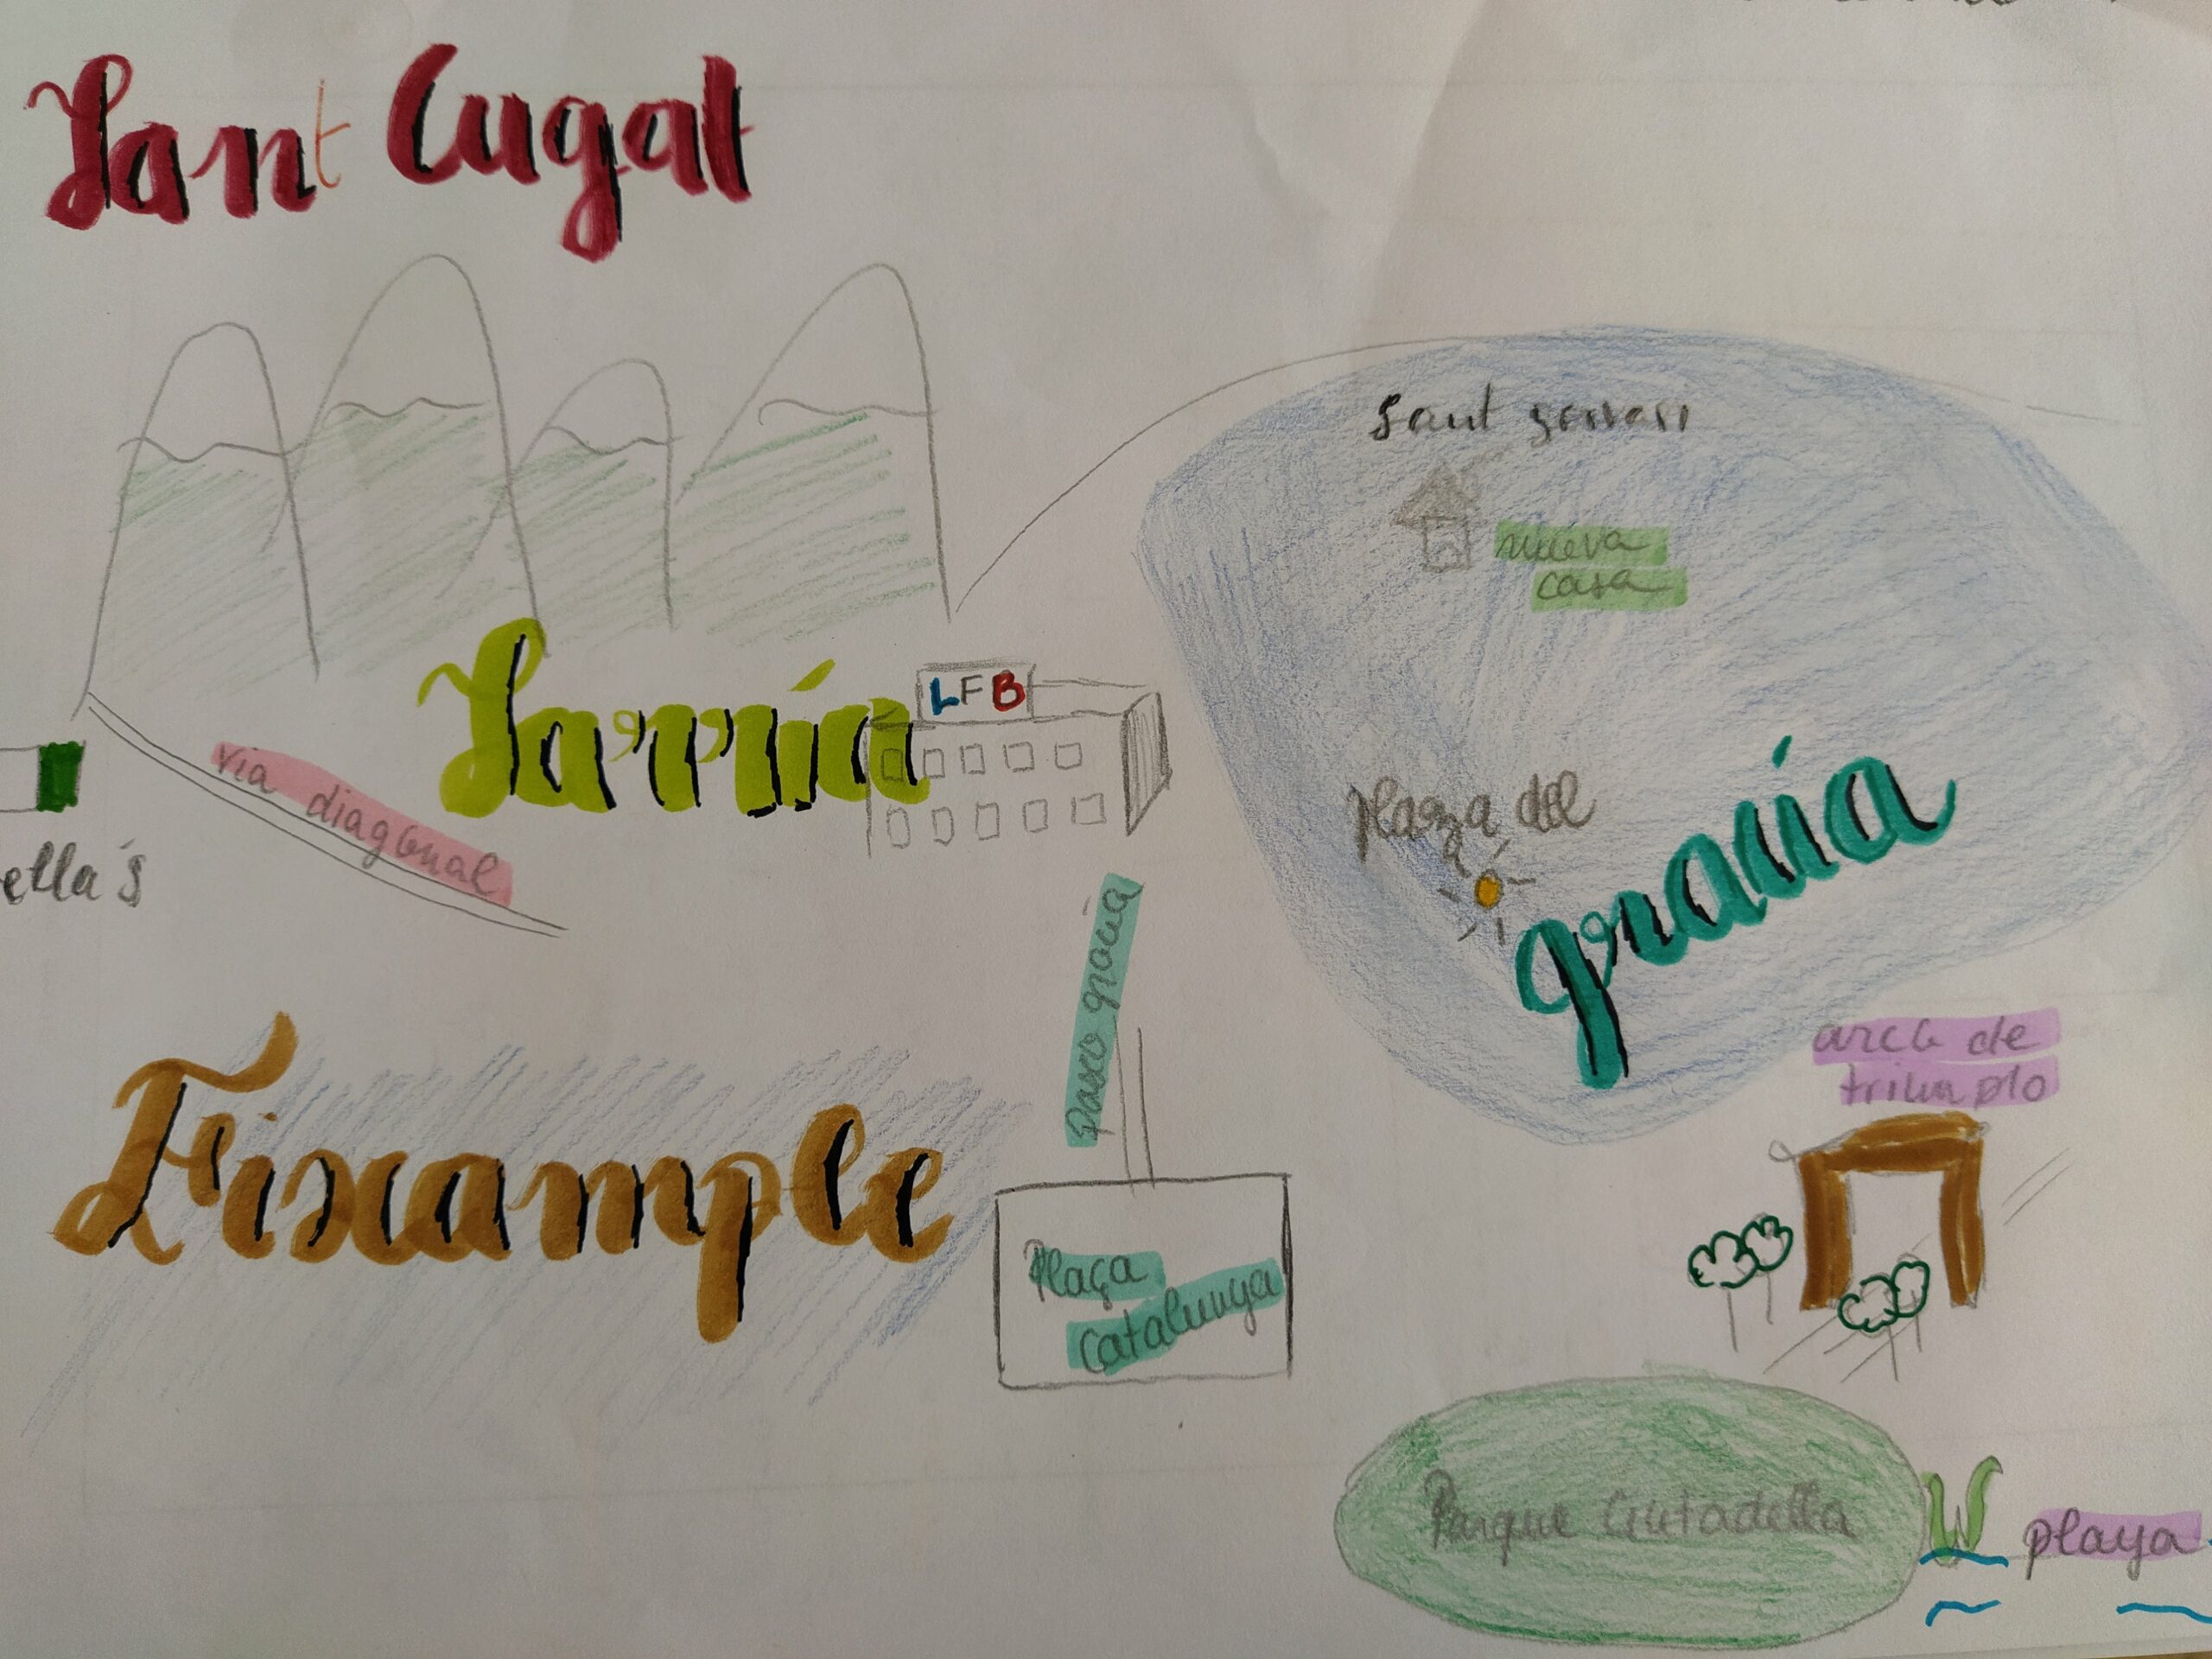 Sant Cugat
Sant Gervasi
nueva
casa
LFB
Sarría
via diagonal
ella's
Plaza del
gracia
paseo gracia
arco de
triumplo
Eixample
Plaça
Catalunya
Parque Ciutadella
playa